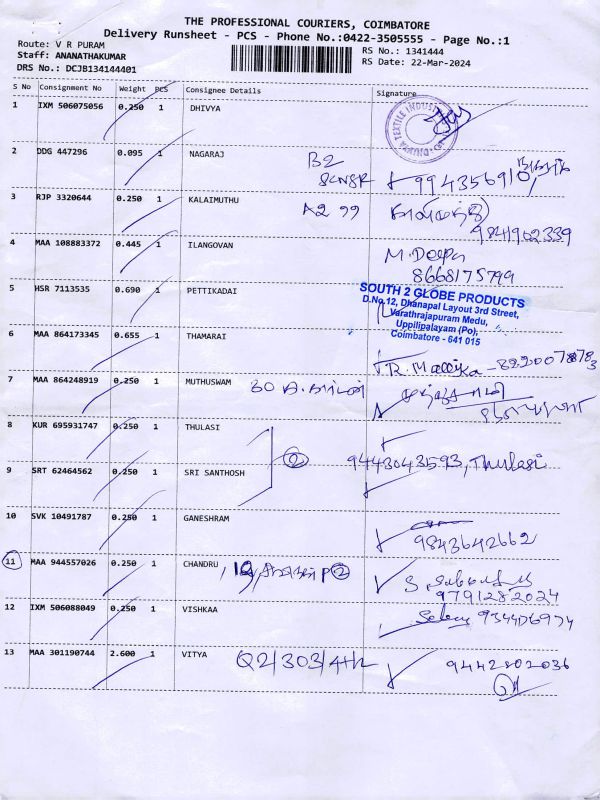 THE PROFESSIONAL COURIERS, COIMBATORE
Delivery Runsheet - PCS - Phone No.:0422-3505555 - Page No.:1
Route: V R PURAM
RS No.: 1341444
Staff: ANANATHAKUMAR
RS Date: 22-Mar-2024
DRS No.: DCJB134144401
S No Consignment No Weight PCS Consignee Details Signature
1 IXM 506075056 0.250 1 DHIVYA
2 DDG 447296 0.095 1 NAGARAJ B2
99435691
3 RJP 3320644 0.250 1 KALAIMUTHU A2 99
9841902339
4 MAA 108883372 0.445 1 ILANGOVAN M. Deepa
8668175799
5 HSR 7113535 0.690 1 PETTIKADAI
SOUTH 2 GLOBE PRODUCTS
D.No.12, Dhanapal Layout 3rd Street,
Varathrajapuram Medu,
Uppilipalayam (Po),
Coimbatore - 641 015
6 MAA 864173345 0.655 1 THAMARAI
R. Mallika -
7 MAA 864248919 0.250 1 MUTHUSWAM 30
8 KUR 695931747 0.250 1 THULASI
9 SRT 62464562 0.250 1 SRI SANTHOSH 2 9443043593, Thulasi
10 SVK 10491787 0.250 1 GANESHRAM
9843642662
11 MAA 944557026 0.250 1 CHANDRU
9791282024
12 IXM 506088049 0.250 1 VISHKAA
13 MAA 301190744 2.600 1 VITYA Q2/303/4th 9442802036